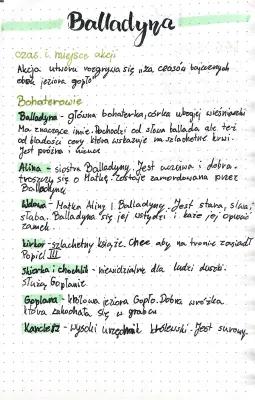 Balladyna
czas i miejsce akcji
Akcja utworu rozgrywa się za czasów bajecznych
obok jeziora Gopło
Bohaterowie
Balladyna - główna bohaterka, córka ubogiej wieśniaczki
Ma znaczące imię. Pochodzi od słowa ballada ale też
od bladości cery która wskazuje na szlachetne krwi.
Jest próżna i
Alina - siostra Balladyny. Jest uczciwa i dobra.
troszczy się o Matkę. Zostaje zamordowana przez
Balladynę
Wdowa - Matka Aliny i Balladyny. Jest stara, siwa,
słaba. Balladyna się jej wstydzi i każe jej opuścić
zamek.
Kirkor - szlachetny książę. Chce aby na tronie zasiadł
Popiel III
Skierka i chochlik - niewidzialne dla ludzi duszki.
służą Goplanie
Goplana - królowa jeziora Gopło. Dobra wróżka
która zakochała się w grabcu
Kanclerz - wysoki urzędnik królewski. Jest surowy.